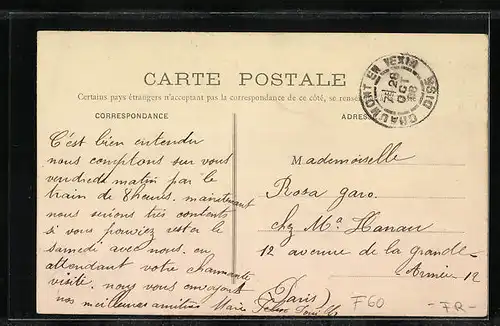 CARTE POSTALE
Certains pays étrangers n'acceptant pas la correspondance de ce côté, se rense
CORRESPONDANCE
ADRES
CHAUMONT EN VEXIN OISE
28
OCT
08
C'est bien entendu
nous comptons sur vous
vendredi matin par le
train de 8 heures. maintenant
nous serions très contents
si vous pouviez rester le
samedi avec nous. en
attendant votre charmante
visite, nous vous envoyons
nos meilleures amitiés Marie
Mademoiselle
Rosa garo.
chez Ma Hanau
12 avenue de la grande-
Armée 12
(Paris)
F60
-FR-